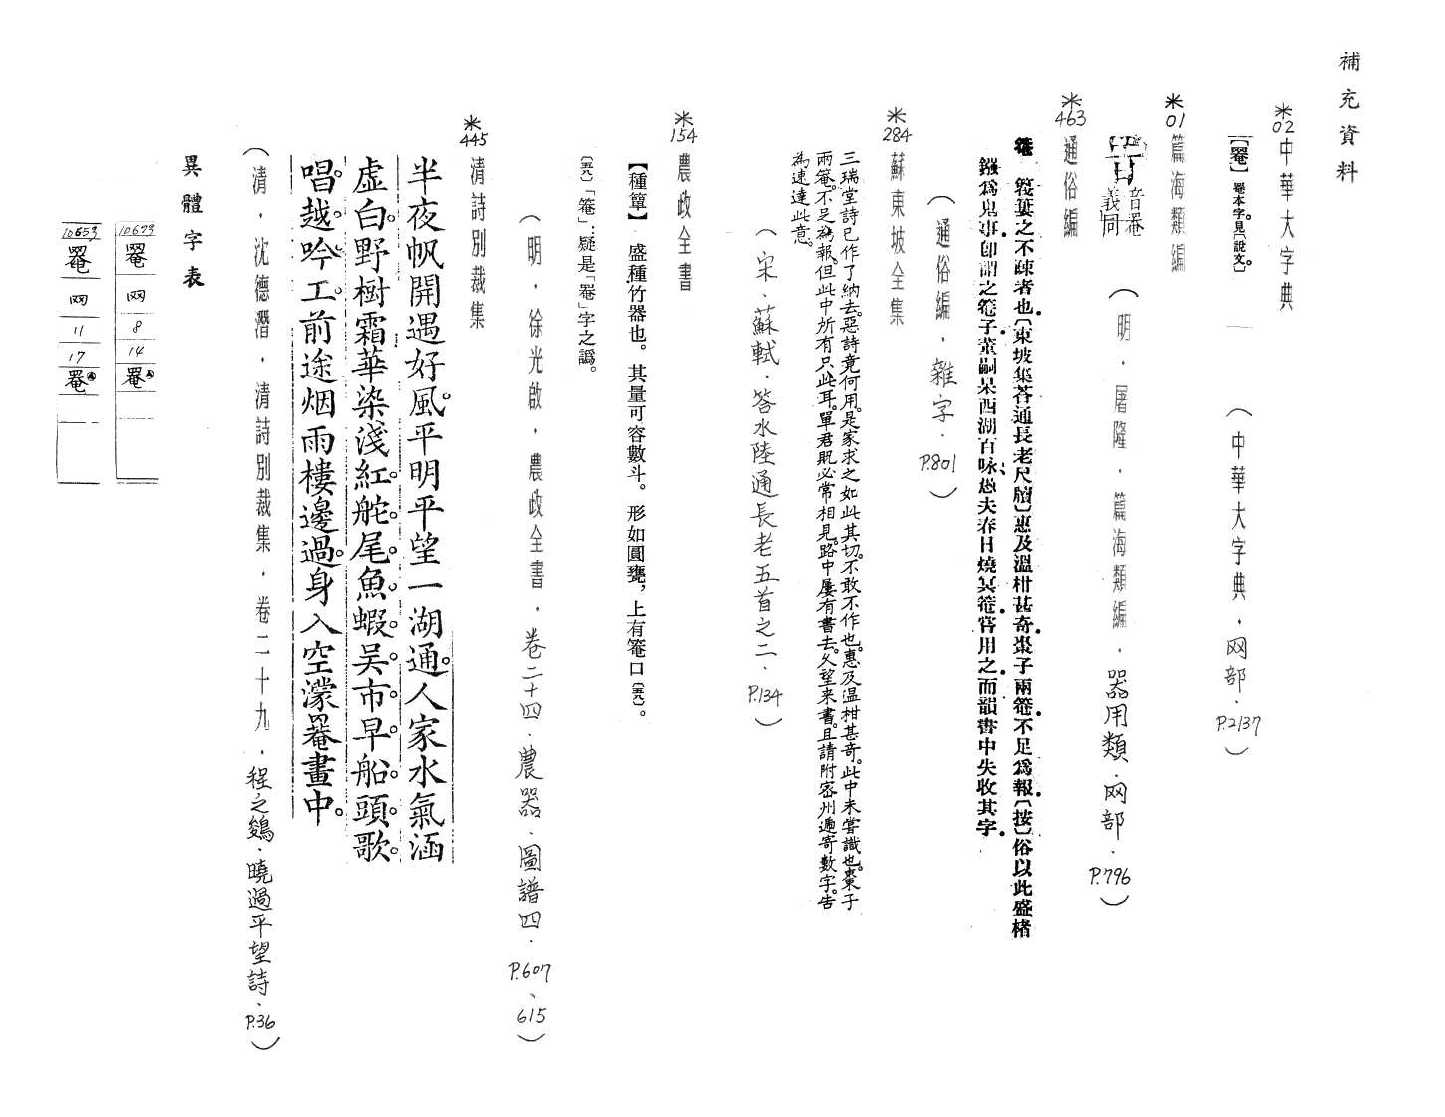 補充資料
*02 中華大字典
【罨】 罨本字。見〔說文〕。
（中華大字典．网部．P.2137）
*01 篇海類編
音罨
義同
（明．屠隆．篇海類編．器用類．网部．P.796）
*463 通俗編
篗簍之不疎者也〔東坡集荅通長老尺牘〕惠及溫柑甚奇棗子兩篗不足爲報〔按〕俗以此盛楮
鏹爲鬼事卽謂之篗子董嗣杲西湖百咏 夫春日燒冥篗嘗用之而韻書中失收其字
（通俗編．雜字．P.801）
*284 蘇東坡全集
三瑞堂詩已作了納去。惡詩竟何用。是家求之如此其切。不敢不作也。惠及温柑甚奇。此中未嘗識也。棗子
兩罨。不足為報。但此中所有只此耳。單君貺必常相見。路中屢有書去。久望來書。且請附密州遞寄數字。告
為速達此意。
（宋．蘇軾．答水陸通長老五首之二．P.134）
*154 農政全書
【種簞】 盛種竹器也。其量可容數斗。形如圓甕，上有篭口〔五八〕。
〔五八〕「篭」：疑是「罨」字之譌。
（明．徐光啟．農政全書．卷二十四．農器．圖譜四．P.607、615）
*445 清詩別裁集
半夜帆開遇好風。平明平望一湖通。人家水氣涵
虛白。野樹霜華染淺紅。舵尾魚蝦吳市早。船頭歌
唱越吟工。前途烟雨樓邊過。身入空濛罨畫中。
（清．沈德潛．清詩別裁集．卷二十九．程之鵕．曉過平望詩．P.36）
異體字表
10679 罨 网 8 14 罨
10653 罨 网 11 17 罨